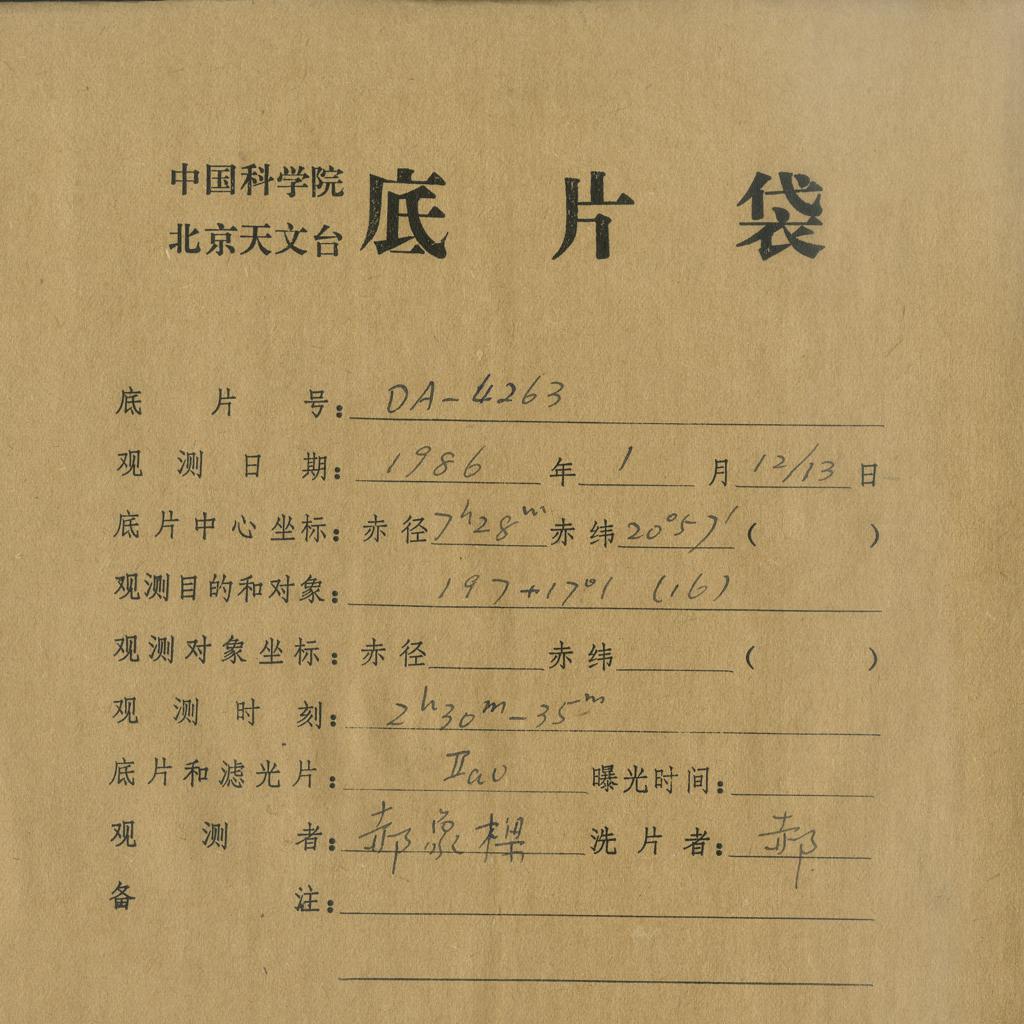 中国科学院
北京天文台 底片袋
底片号：DA-4263
观测日期：1986年1月12/13日
底片中心坐标：赤径7ʰ28ᵐ赤纬20°57′（ ）
观测目的和对象：197+17°1 (16)
观测对象坐标：赤径 赤纬 （ ）
观测时刻：2ʰ30ᵐ-35ᵐ
底片和滤光片：Ⅱa0 曝光时间：
观测者：郝象樑 洗片者：郝
备注：